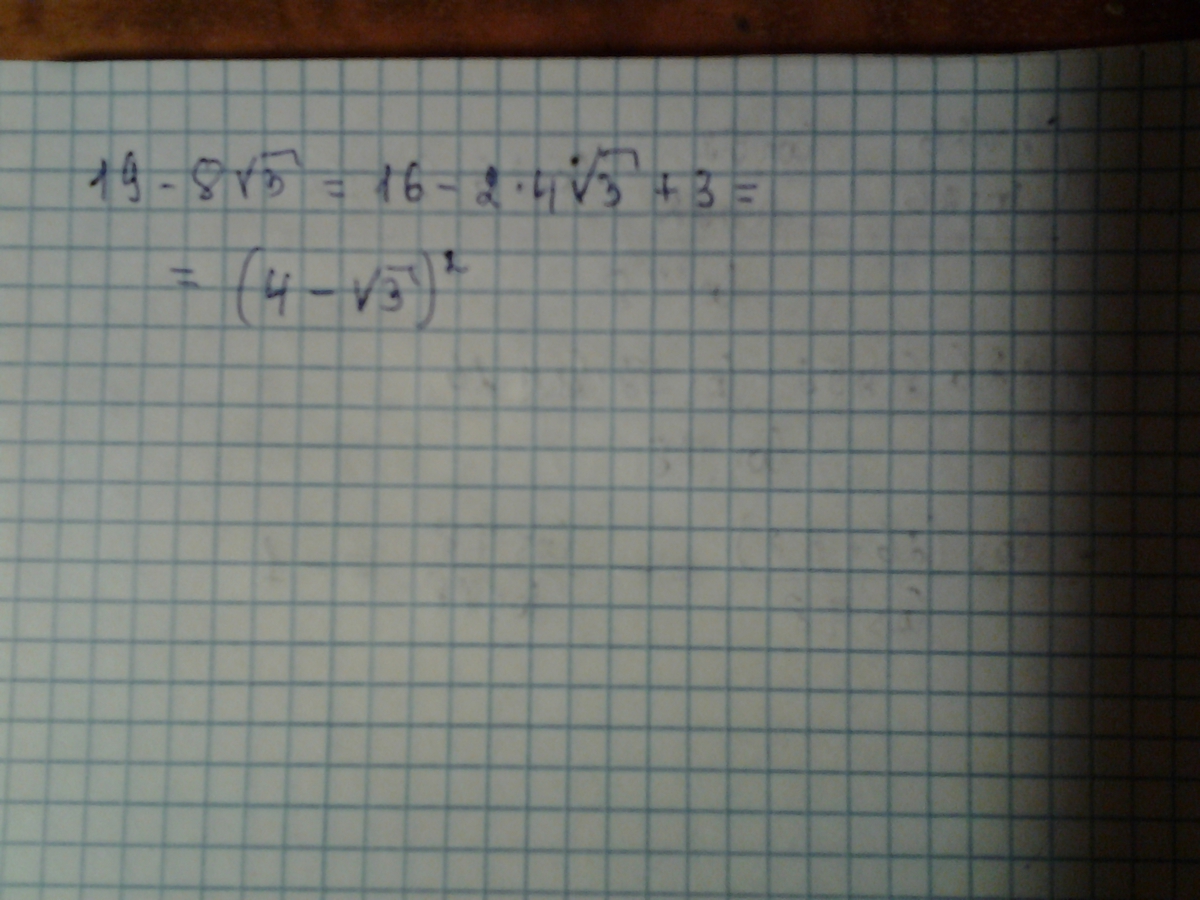 19 - 8√3 = 16 - 2·4·√3 + 3 =
= (4 - √3)²